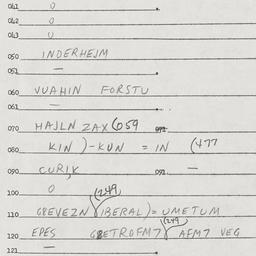 041 O
042 O
043 O
050 INDERHEJM
051 —
060 VUAHIN FORSTU
061 —
070 HAJLN ZAX(659
080 KIN )-KUN = IN (477
090 CURIK 091 —
100 O (249
110 GREVEZN (IBERAL) = UMETUM
120 EPES (249 AFM7 VEG
121 —